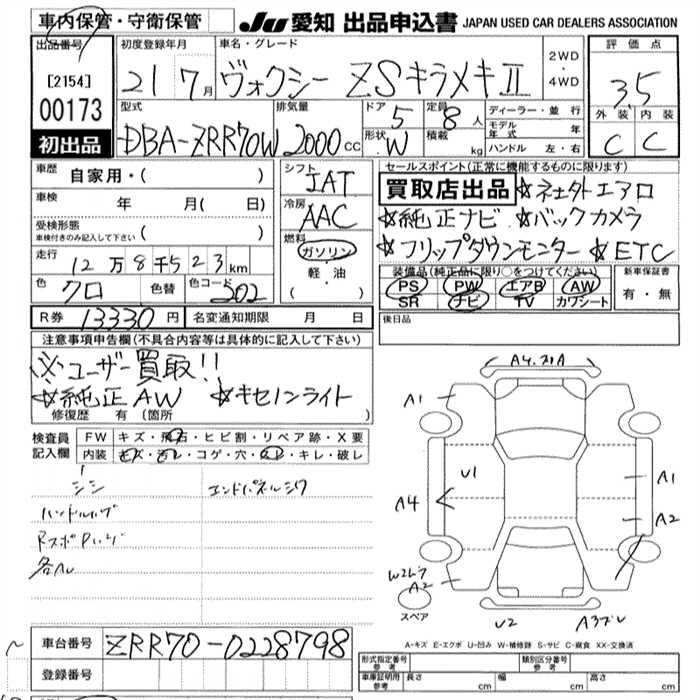 車内保管・守衛保管
JU 愛知 出品申込書 JAPAN USED CAR DEALERS ASSOCIATION
出品番号 初度登録年月 車名・グレード 2WD・4WD 評価点
[2154] 21 7月 ヴォクシー ZSキラメキII 3.5
00173 型式 排気量 ドア 5 定員 8人 ディーラー・並行 外装 内装
初出品 DBA-ZRR70W 2000cc 形状 W 積載 kg モデル年式 年 ハンドル 左・右 C C
車歴 自家用・( ) シフト IAT セールスポイント(正常に機能するものに限ります)
車検 年 月(日) 冷房 AAC 買取店出品 ☆ネオクタトエアロ
☆純正ナビ ☆バックカメラ
受検形態 車検付きのみ記入して下さい ( ) 燃料 ガソリン ☆フリップダウンモニター ☆ETC
走行 12万8千523km 軽・油 装備品(純正品に限り○をつけてください) 新車保証書
色 クロ 色替 色コード 202 ・( ) PS PW エアB AW 有・無
SR ナビ TV カワシート
R券 13330円 名変通知期限 月 日 後日品
注意事項申告欄(不具合内容等は具体的に記入して下さい)
※ユーザー買取!!
☆純正AW ☆キセノンライト
修復歴 有(箇所
検査員記入欄 FW キズ・飛石・ヒビ割・リペア跡・X要
内装 キズ・汚レ・コゲ・穴・キレ・破レ
シミ エンドパネルシワ
A1 U1 A1
A4 A2
A2
U2
スペア
A-キズ E-エクボ U-凹み W-補修跡 S-サビ C-腐食 XX-交換済
車台番号 ZRR70-0228798
登録番号
形式指定番号 参考 類別区分番号 参考
車庫証明用 参考 長さ cm 幅 cm 高さ cm